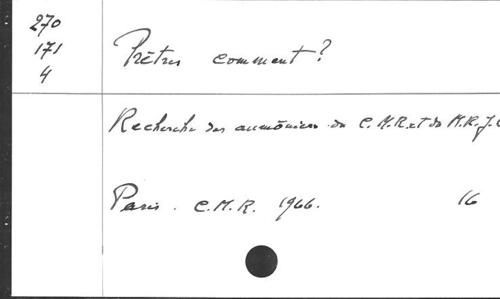 270
171
4
Prêtres comment?
Recherche des aumôniers du C.M.R. et du M.R.J.C
Paris. C.M.R. 1966. 16